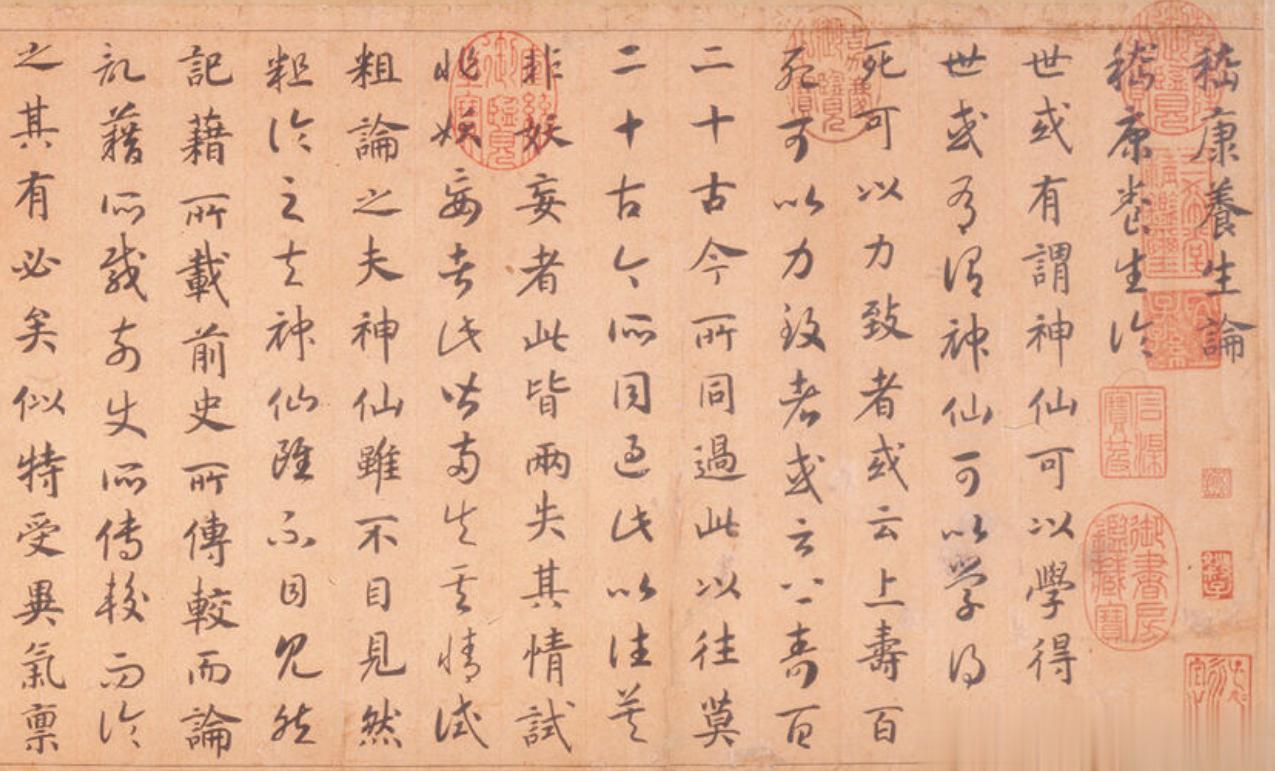 嵇康養生論
嵇康養生論
世或有謂神仙可以學得
世或有謂神仙可以學得
死可以力致者或云上壽百
死可以力致者或云上壽百
二十古今所同過此以往莫
二十古今所同過此以往莫
非妖妄者此皆兩失其情試
非妖妄者此皆兩失其情試
粗論之夫神仙雖不目見然
粗論之夫神仙雖不目見然
記藉所載前史所傳較而論
記藉所載前史所傳較而論
之其有必矣似特受異氣稟
石渠
寶笈
御書房
鑑藏寶